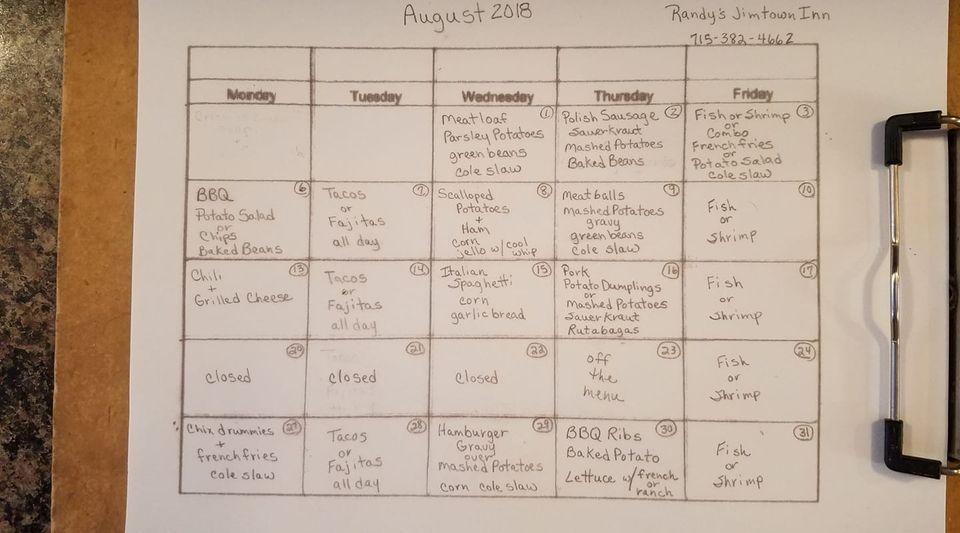 August 2018
Randy's Jimtown Inn
715-382-4662
Monday
Tuesday
Wednesday
Thursday
Friday
1
Meatloaf
Parsley Potatoes
green beans
cole slaw
2
Polish Sausage
Sauerkraut
Mashed Potatoes
Baked Beans
3
Fish or Shrimp
or
Combo
French fries
or
Potato Salad
Cole slaw
6
BBQ
Potato Salad
or
Chips
Baked Beans
7
Tacos
or
Fajitas
all day
8
Scalloped
Potatoes
+
Ham
Corn
jello w/ cool
whip
9
Meatballs
Mashed Potatoes
gravy
green beans
cole slaw
10
Fish
or
Shrimp
13
Chili
+
Grilled Cheese
14
Tacos
or
Fajitas
all day
15
Italian
Spaghetti
corn
garlic bread
16
Pork
Potato Dumplings
or
Mashed Potatoes
Sauer Kraut
Rutabagas
17
Fish
or
Shrimp
20
closed
21
closed
22
closed
23
off
the
menu
24
Fish
or
Shrimp
27
Chix drummies
+
french fries
cole slaw
28
Tacos
or
Fajitas
all day
29
Hamburger
Gravy
over
Mashed Potatoes
corn cole slaw
30
BBQ Ribs
Baked Potato
Lettuce w/ french
or
ranch
31
Fish
or
Shrimp